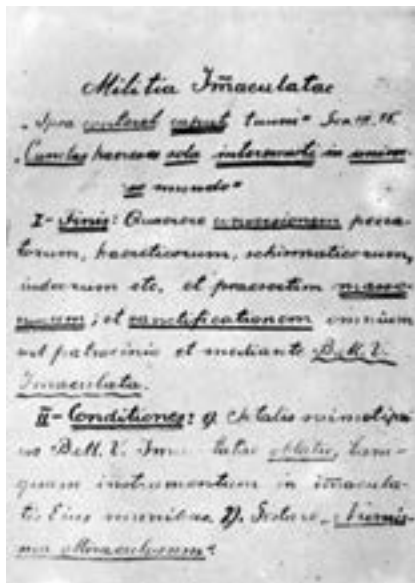 Militia Im̄aculatae
„Ipsa conteret caput tuum" Gen
„Cunctas haereses sola interemisti in univer-
so mundo"
I- Finis: Quaerere conversionem pecca-
torum, haereticorum, schismaticorum,
iudeorum etc. et praesertim masso-
norum; et sanctificationem omnium
sub patrocinio et mediante B.M.V.
Immaculata.
II- Conditiones: 1) totalis sui oblatio,
B.M.V. Imm latae oblatio, tam-
quam instrumentum in im̄acula-
tis Eius manibus. 2). „Numis-
ma Miraculosum".